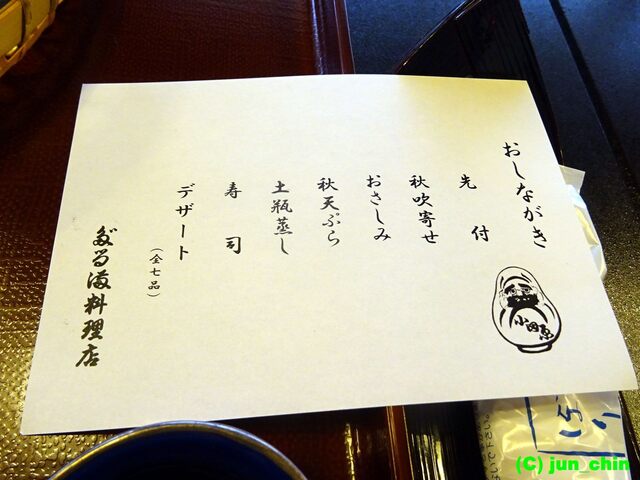 おしながき
先付
秋吹寄せ
おさしみ
秋天ぷら
土瓶蒸し
寿司
デザート
(全七品)
だるま料理店
小田原
(C) jun_chin